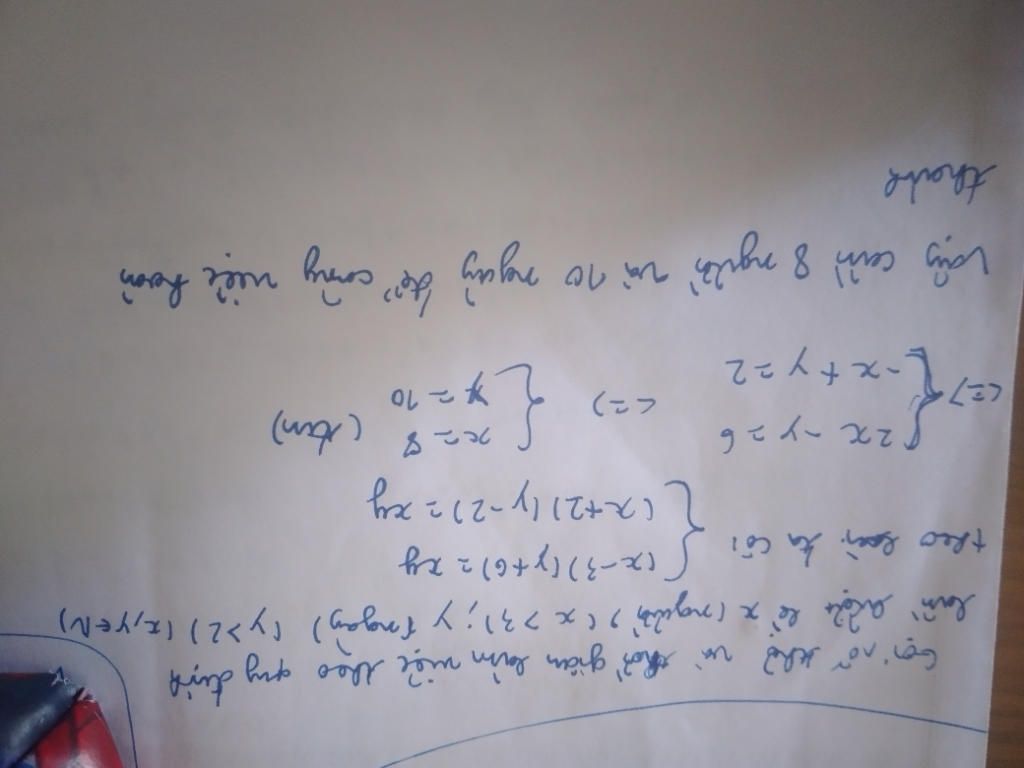 Gọi số thợ và thời gian làm việc theo quy định
lần lượt là x (người) (x > 3); y (ngày) (y > 2) (x, y ∈ N)
(x - 3)(y + 6) = xy
theo bài ta có:
(x + 2)(y - 2) = xy
2x - y = 6 x = 8
<=> <=> (t/m)
-x + y = 2 y = 10
Vậy cần 8 người và 10 ngày để công việc hoàn
thành